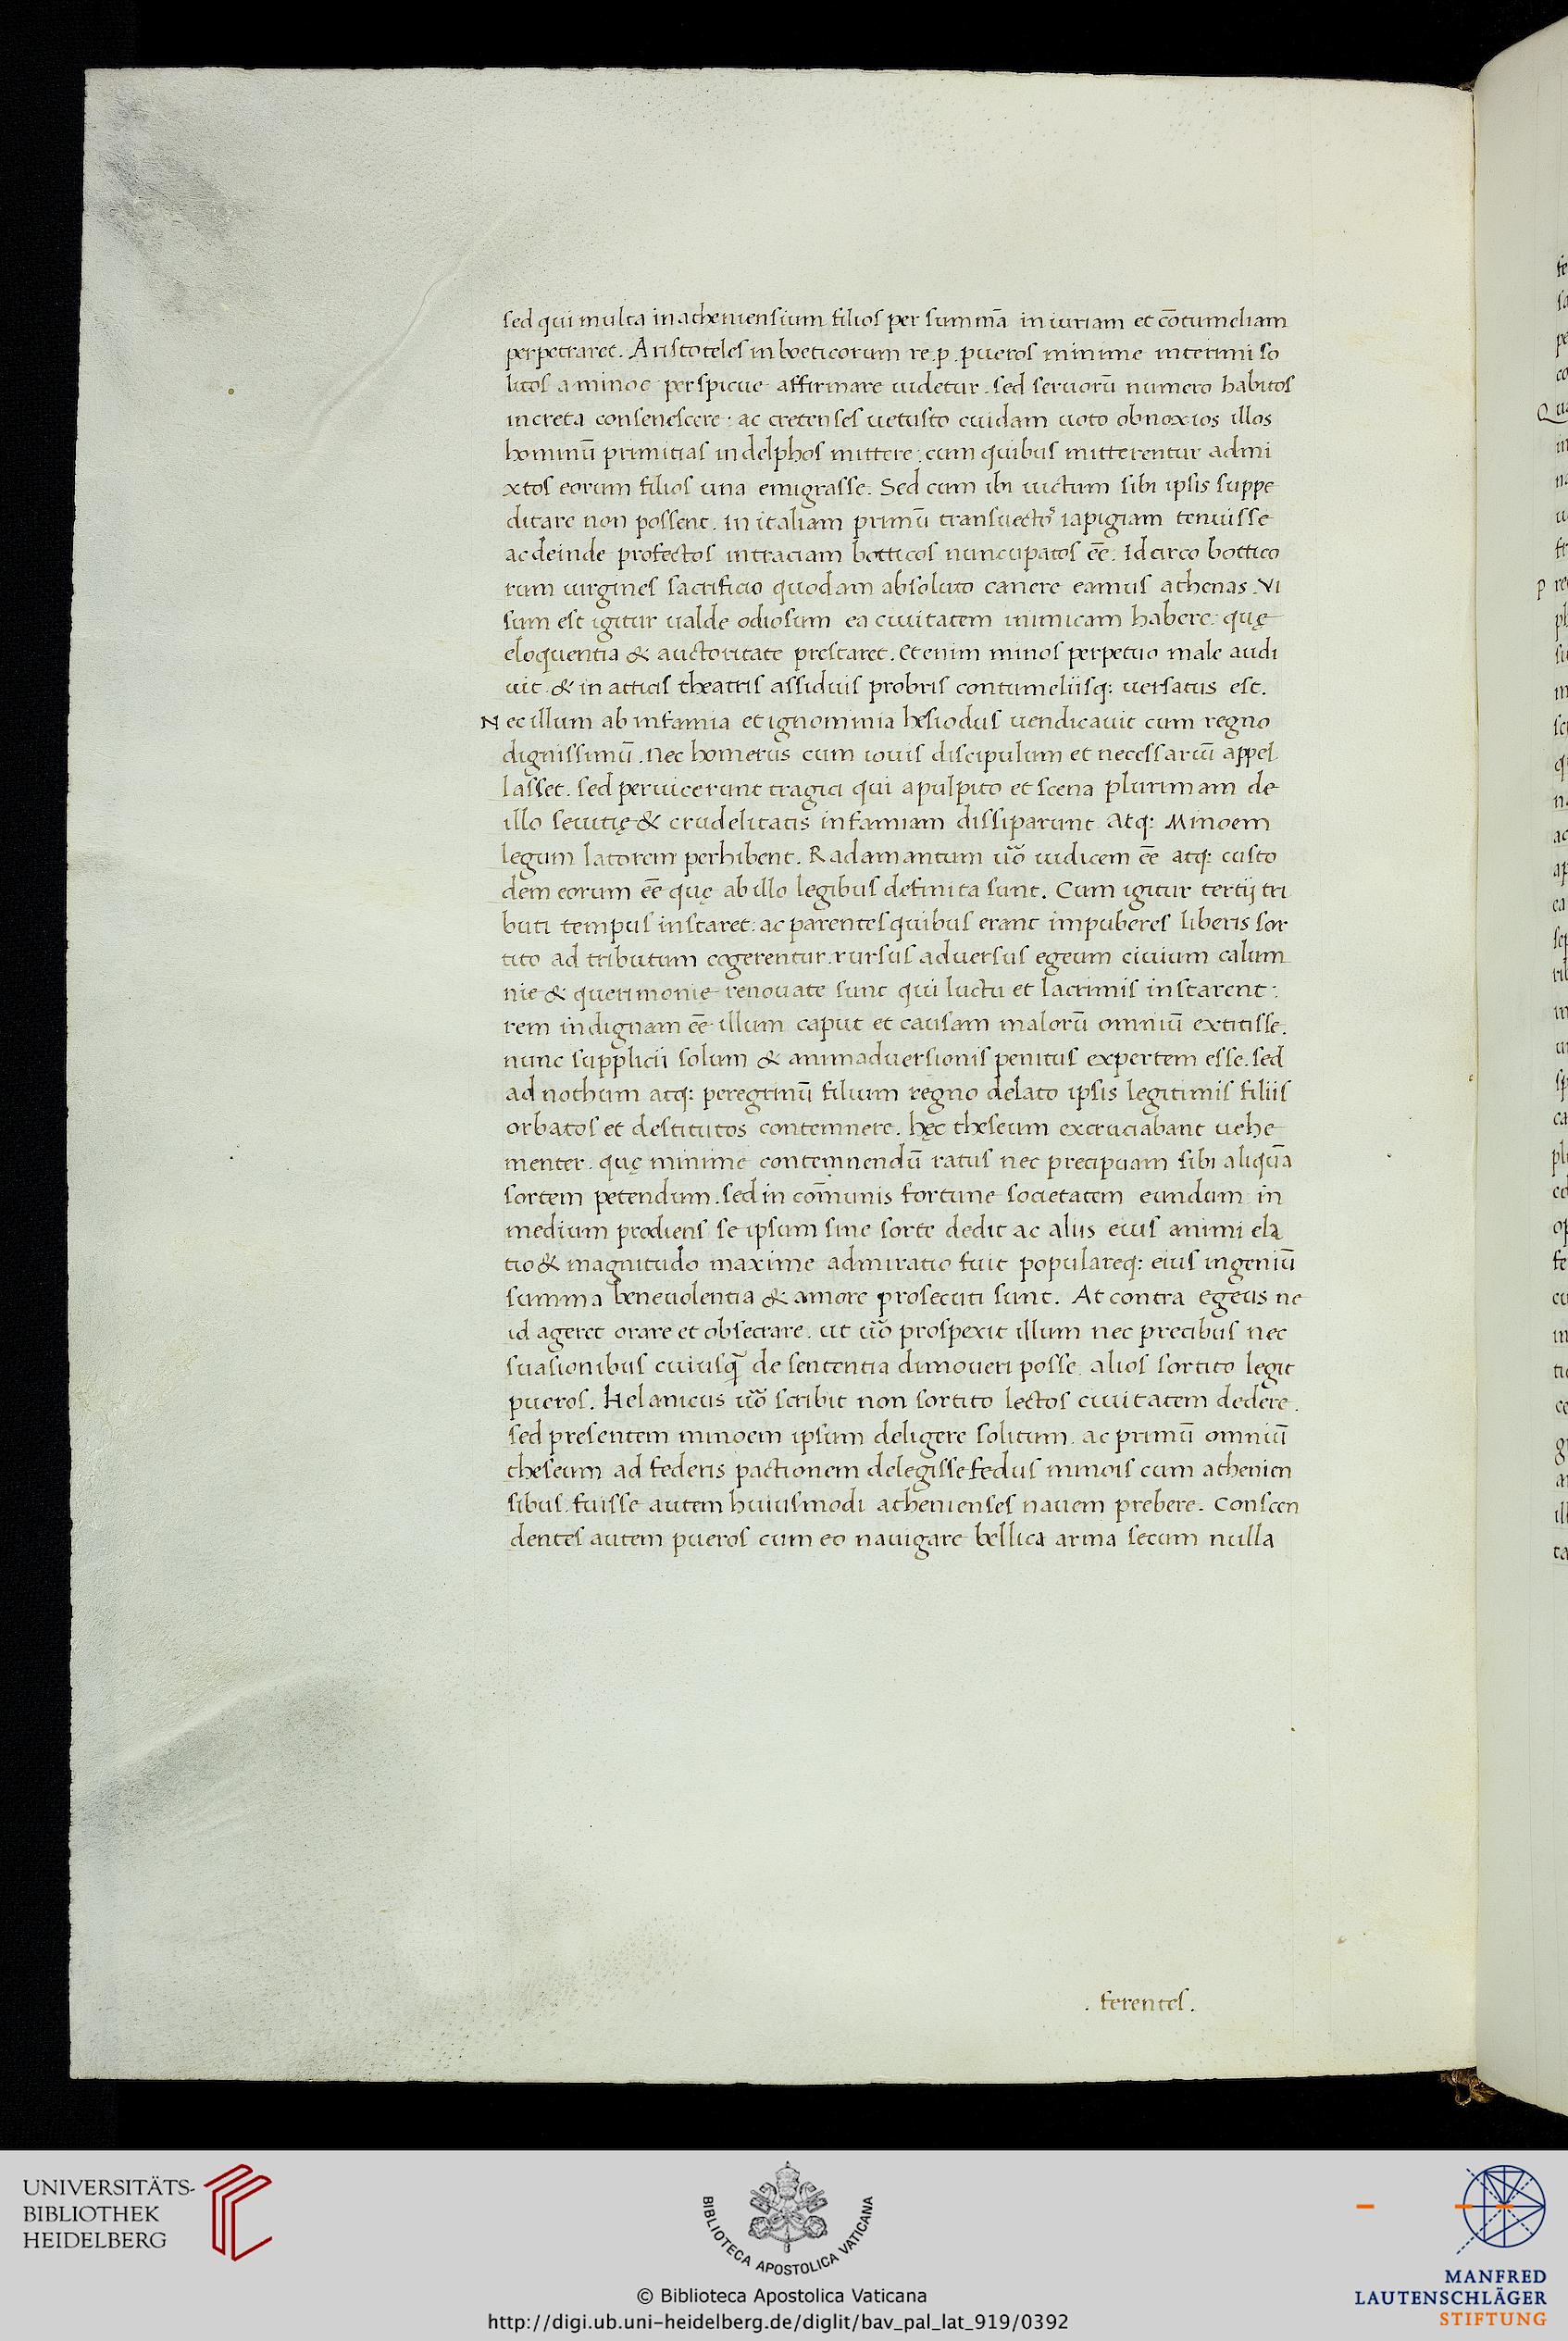 sed qui multa in atheniensium filios per summā iniuriam et cōtumeliam
perpetraret. Aristoteles in boeticorum re .p. pueros minime interimi so
litos a minoe perspicue affirmare uidetur. sed seruorū numero habitos
in creta consenescere: ac cretenses uetusto cuidam uoto obnoxios illos
hominū primitias in delphos mittere: cum quibus mitterentur admi
xtos eorum filios una emigrasse. Sed cum ibi uictum sibi ipsis suppe
ditare non possent. in italiam primū transuecto² iapigiam tenuisse
ac deinde profectos in traciam botticos nuncupatos eē. Idcirco bottico
rum uirgines sacrificio quodam absoluto canere eamus athenas. Vi
sum est igitur ualde odiosum ea ciuitatem inimicam habere: quę
eloquentia & auctoritate prestaret. Etenim minos perpetuo male audi
uit. & in atticis theatris assiduis probris contumeliisq: uersatus est.
Nec illum ab infamia et ignominia hesiodus uendicauit cum regno
dignissimū. Nec homerus cum iouis discipulum et necessariū appel
lasset. sed peruicerunt tragici qui a pulpito et scena plurimam de
illo seuitię & crudelitatis infamiam dissiparunt. Atq: Minoem
legum latorem perhibent. Radamantum uo᷑ iudicem eē atq: custo
dem eorum eē quę ab illo legibus definita sunt. Cum igitur tertij tri
buti tempus instaret: ac parentes quibus erant impuberes liberis sor
tito ad tributum cogerentur. rursus aduersus egeum ciuium calum
nie & querimonie renouate sunt qui luctu et lacrimis instarent:
rem indignam eē illum caput et causam malorū omniū extitisse.
nunc supplicii solum & animaduersionis penitus expertem esse. sed
ad nothum atq: peregrinū filium regno delato ipsis legitimis filiis
orbatos et destitutos contemnere. hęc theseum excruciabant uehe
menter. quę minime contemnendū ratus nec precipuam sibi aliquā
sortem petendum. sed in cōmunis fortune societatem eundum in
medium prodiens se ipsum sine sorte dedit ac aliis eius animi ela
tio & magnitudo maxime admiratio fuit populareq: eius ingeniū
summa beneuolentia & amore prosecuti sunt. At contra egeus ne
id ageret orare et obsecrare. ut uo᷑ prospexit illum nec precibus nec
suasionibus cuiusq̄ de sententia dimoueri posse. alios sortito legit
pueros. Helanicus uo᷑ scribit non sortito lectos ciuitatem dedere.
sed presentem minoem ipsum deligere solitum. ac primū omniū
theseum ad federis pactionem delegisse fedus minois cum athenien
sibus. fuisse autem huiusmodi athenienses nauem prebere. Conscen
dentes autem pueros cum eo nauigare bellica arma secum nulla
. ferentes.
UNIVERSITÄTS-
BIBLIOTHEK
HEIDELBERG
BIBLIOTECA APOSTOLICA VATICANA
© Biblioteca Apostolica Vaticana
http://digi.ub.uni-heidelberg.de/diglit/bav_pal_lat_919/0392
MANFRED
LAUTENSCHLÄGER
STIFTUNG